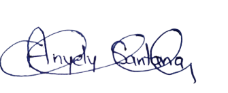 Anyely Santana